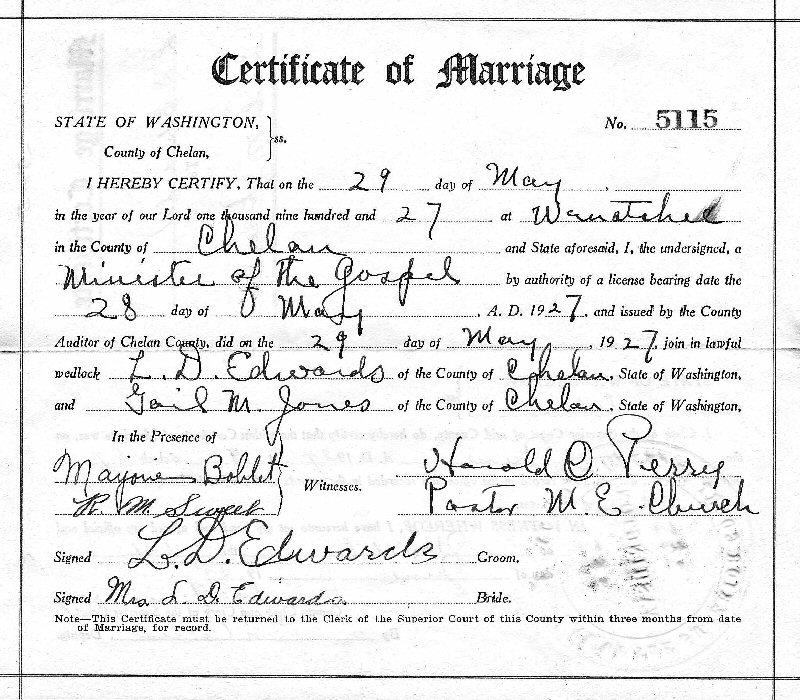 Certificate of Marriage
STATE OF WASHINGTON, } ss. No. 5115
County of Chelan,
I HEREBY CERTIFY, That on the 29 day of May
in the year of our Lord one thousand nine hundred and 27 at Wenatchee
in the County of Chelan and State aforesaid, I, the undersigned, a
Minister of the Gospel by authority of a license bearing date the
28 day of May, A. D. 1927, and issued by the County
Auditor of Chelan County, did on the 29 day of May, 1927, join in lawful
wedlock L. D. Edwards of the County of Chelan, State of Washington,
and Gail M. Jones of the County of Chelan, State of Washington,
In the Presence of
Harold C Perry
Witnesses.
R. M. Sweet Pastor M. E. Church
Signed L. D. Edwards Groom.
Signed Mrs L. D. Edwards Bride.
Note—This Certificate must be returned to the Clerk of the Superior Court of this County within three months from date
of Marriage, for record.